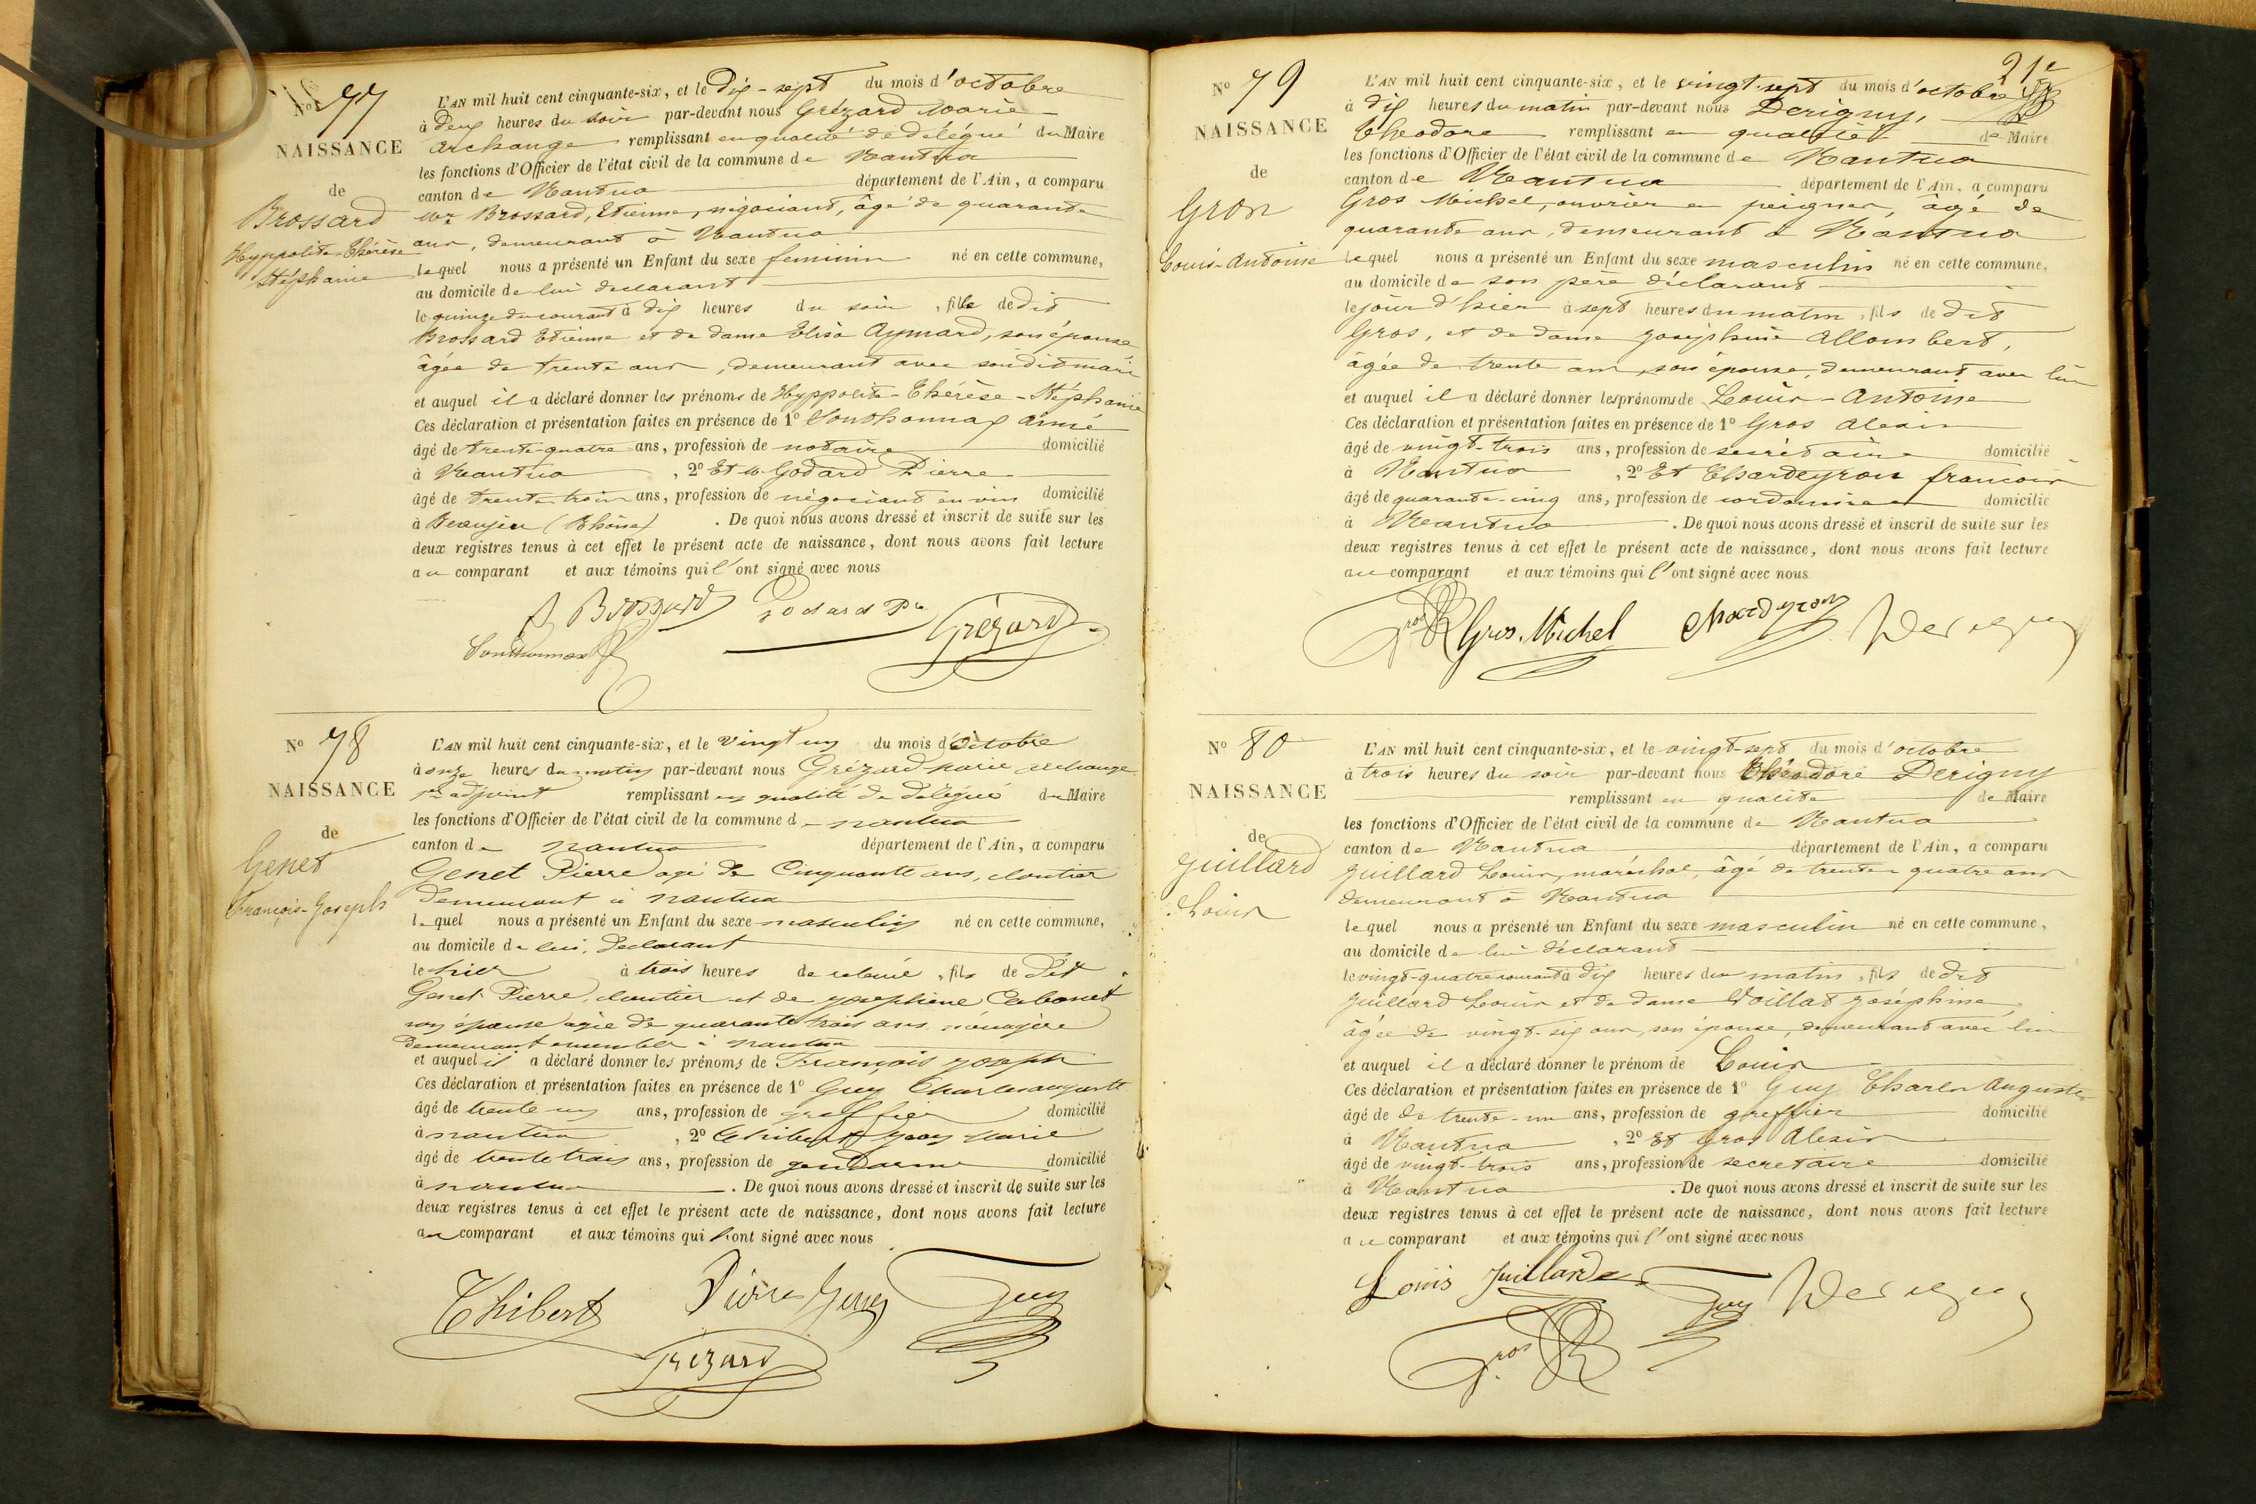 Nº 77
NAISSANCE
de
Brossard
Hyppolite-Thérèse
Stéphanie
L'AN mil huit cent cinquante-six, et le dix-sept du mois d'octobre
à deux heures du soir par-devant nous Grézard Marie
Archange remplissant en qualité de délégué du Maire
les fonctions d'Officier de l'état civil de la commune de Nantua
canton de Nantua département de l'Ain, a comparu
Mr Brossard, Etienne, négociant, âgé de quarante
ans, demeurant à Nantua
lequel nous a présenté un Enfant du sexe feminin né en cette commune,
au domicile de lui déclarant
le quinze du courant à dix heures du soir, fille de dit
Brossard Etienne et de dame Elisa Aymard, son épouse
âgée de trente ans, demeurant avec son dit mari
et auquel il a déclaré donner les prénoms de Hyppolite-Thérèse-Stéphanie
Ces déclaration et présentation faites en présence de 1º Vonthonnax Aimé
âgé de trente-quatre ans, profession de notaire domicilié
à Nantua, 2º Et Mr Godard Pierre
âgé de trente-trois ans, profession de négociant en vin domicilié
à Beaujeu (Rhône). De quoi nous avons dressé et inscrit de suite sur les
deux registres tenus à cet effet le présent acte de naissance, dont nous avons fait lecture
au comparant et aux témoins qui l'ont signé avec nous
Brossard Godard Pre Grézard
Nº 78
NAISSANCE
de
Genet
François-Joseph
L'AN mil huit cent cinquante-six, et le vingt un du mois d'octobre
à onze heures du matin par-devant nous Grézard marie archange
1er adjoint remplissant en qualité de délégué du Maire
les fonctions d'Officier de l'état civil de la commune de nantua
canton de nantua département de l'Ain, a comparu
Genet Pierre agé de Cinquante ans, cloutier
demeurant à nantua
lequel nous a présenté un Enfant du sexe masculin né en cette commune,
au domicile de lui, déclarant
le hier à trois heures de relevée, fils de dit
Genet Pierre, cloutier et de josephine Cabonet
son épouse agée de quarante trois ans ménagère
demeurant ensemble à nantua
et auquel il a déclaré donner les prénoms de François joseph
Ces déclaration et présentation faites en présence de 1º Guy Charles auguste
âgé de trente un ans, profession de greffier domicilié
à nantua, 2º Thibert jean marie
âgé de trente trois ans, profession de gendarme domicilié
à nantua. De quoi nous avons dressé et inscrit de suite sur les
deux registres tenus à cet effet le présent acte de naissance, dont nous avons fait lecture
au comparant et aux témoins qui l'ont signé avec nous
Thibert Pierre Genet Guy
Grézard
21e
Nº 79
NAISSANCE
de
Gros
Louis-Antoine
L'AN mil huit cent cinquante-six, et le vingt-sept du mois d'octobre
à dix heures du matin par-devant nous Derigny,
Théodore remplissant en qualité de Maire
les fonctions d'Officier de l'état civil de la commune de Nantua
canton de Nantua département de l'Ain, a comparu
Gros Michel, ouvrier en peignes, âgé de
quarante ans, demeurant à Nantua
lequel nous a présenté un Enfant du sexe masculin né en cette commune,
au domicile de son père déclarant
le jour d'hier à sept heures du matin, fils de dit
Gros, et de dame joséphine Allombert,
âgée de trente ans, son épouse, demeurant avec lui
et auquel il a déclaré donner les prénoms de Louis-Antoine
Ces déclaration et présentation faites en présence de 1º Gros Alexis
âgé de vingt-trois ans, profession de secrétaire domicilié
à Nantua, 2º Et Chardeyron françois
âgé de quarante-cinq ans, profession de cordonnier domicilié
à Nantua. De quoi nous avons dressé et inscrit de suite sur les
deux registres tenus à cet effet le présent acte de naissance, dont nous avons fait lecture
au comparant et aux témoins qui l'ont signé avec nous
Gros Gros. Michel Chardeyron Derigny
Nº 80
NAISSANCE
de
juillard
Louis
L'AN mil huit cent cinquante-six, et le vingt-sept du mois d'octobre
à trois heures du soir par-devant nous Théodore Derigny
remplissant en qualité de Maire
les fonctions d'Officier de l'état civil de la commune de Nantua
canton de Nantua département de l'Ain, a comparu
juillard Louis, maréchal, âgé de trente-quatre ans
demeurant à Nantua
lequel nous a présenté un Enfant du sexe masculin né en cette commune,
au domicile de lui déclarant
le vingt-quatre courant à dix heures du matin, fils de dit
juillard Louis et de dame Voillat joséphine,
âgée de vingt-six ans, son épouse, demeurant avec lui
et auquel il a déclaré donner le prénom de Louis
Ces déclaration et présentation faites en présence de 1º Guy Charles Auguste
âgé de de trente-un ans, profession de greffier domicilié
à Nantua, 2º Et Gros Alexis
âgé de vingt-trois ans, profession de secretaire domicilié
à Nantua. De quoi nous avons dressé et inscrit de suite sur les
deux registres tenus à cet effet le présent acte de naissance, dont nous avons fait lecture
au comparant et aux témoins qui l'ont signé avec nous
Louis Juillard Guy Derigny
Gros